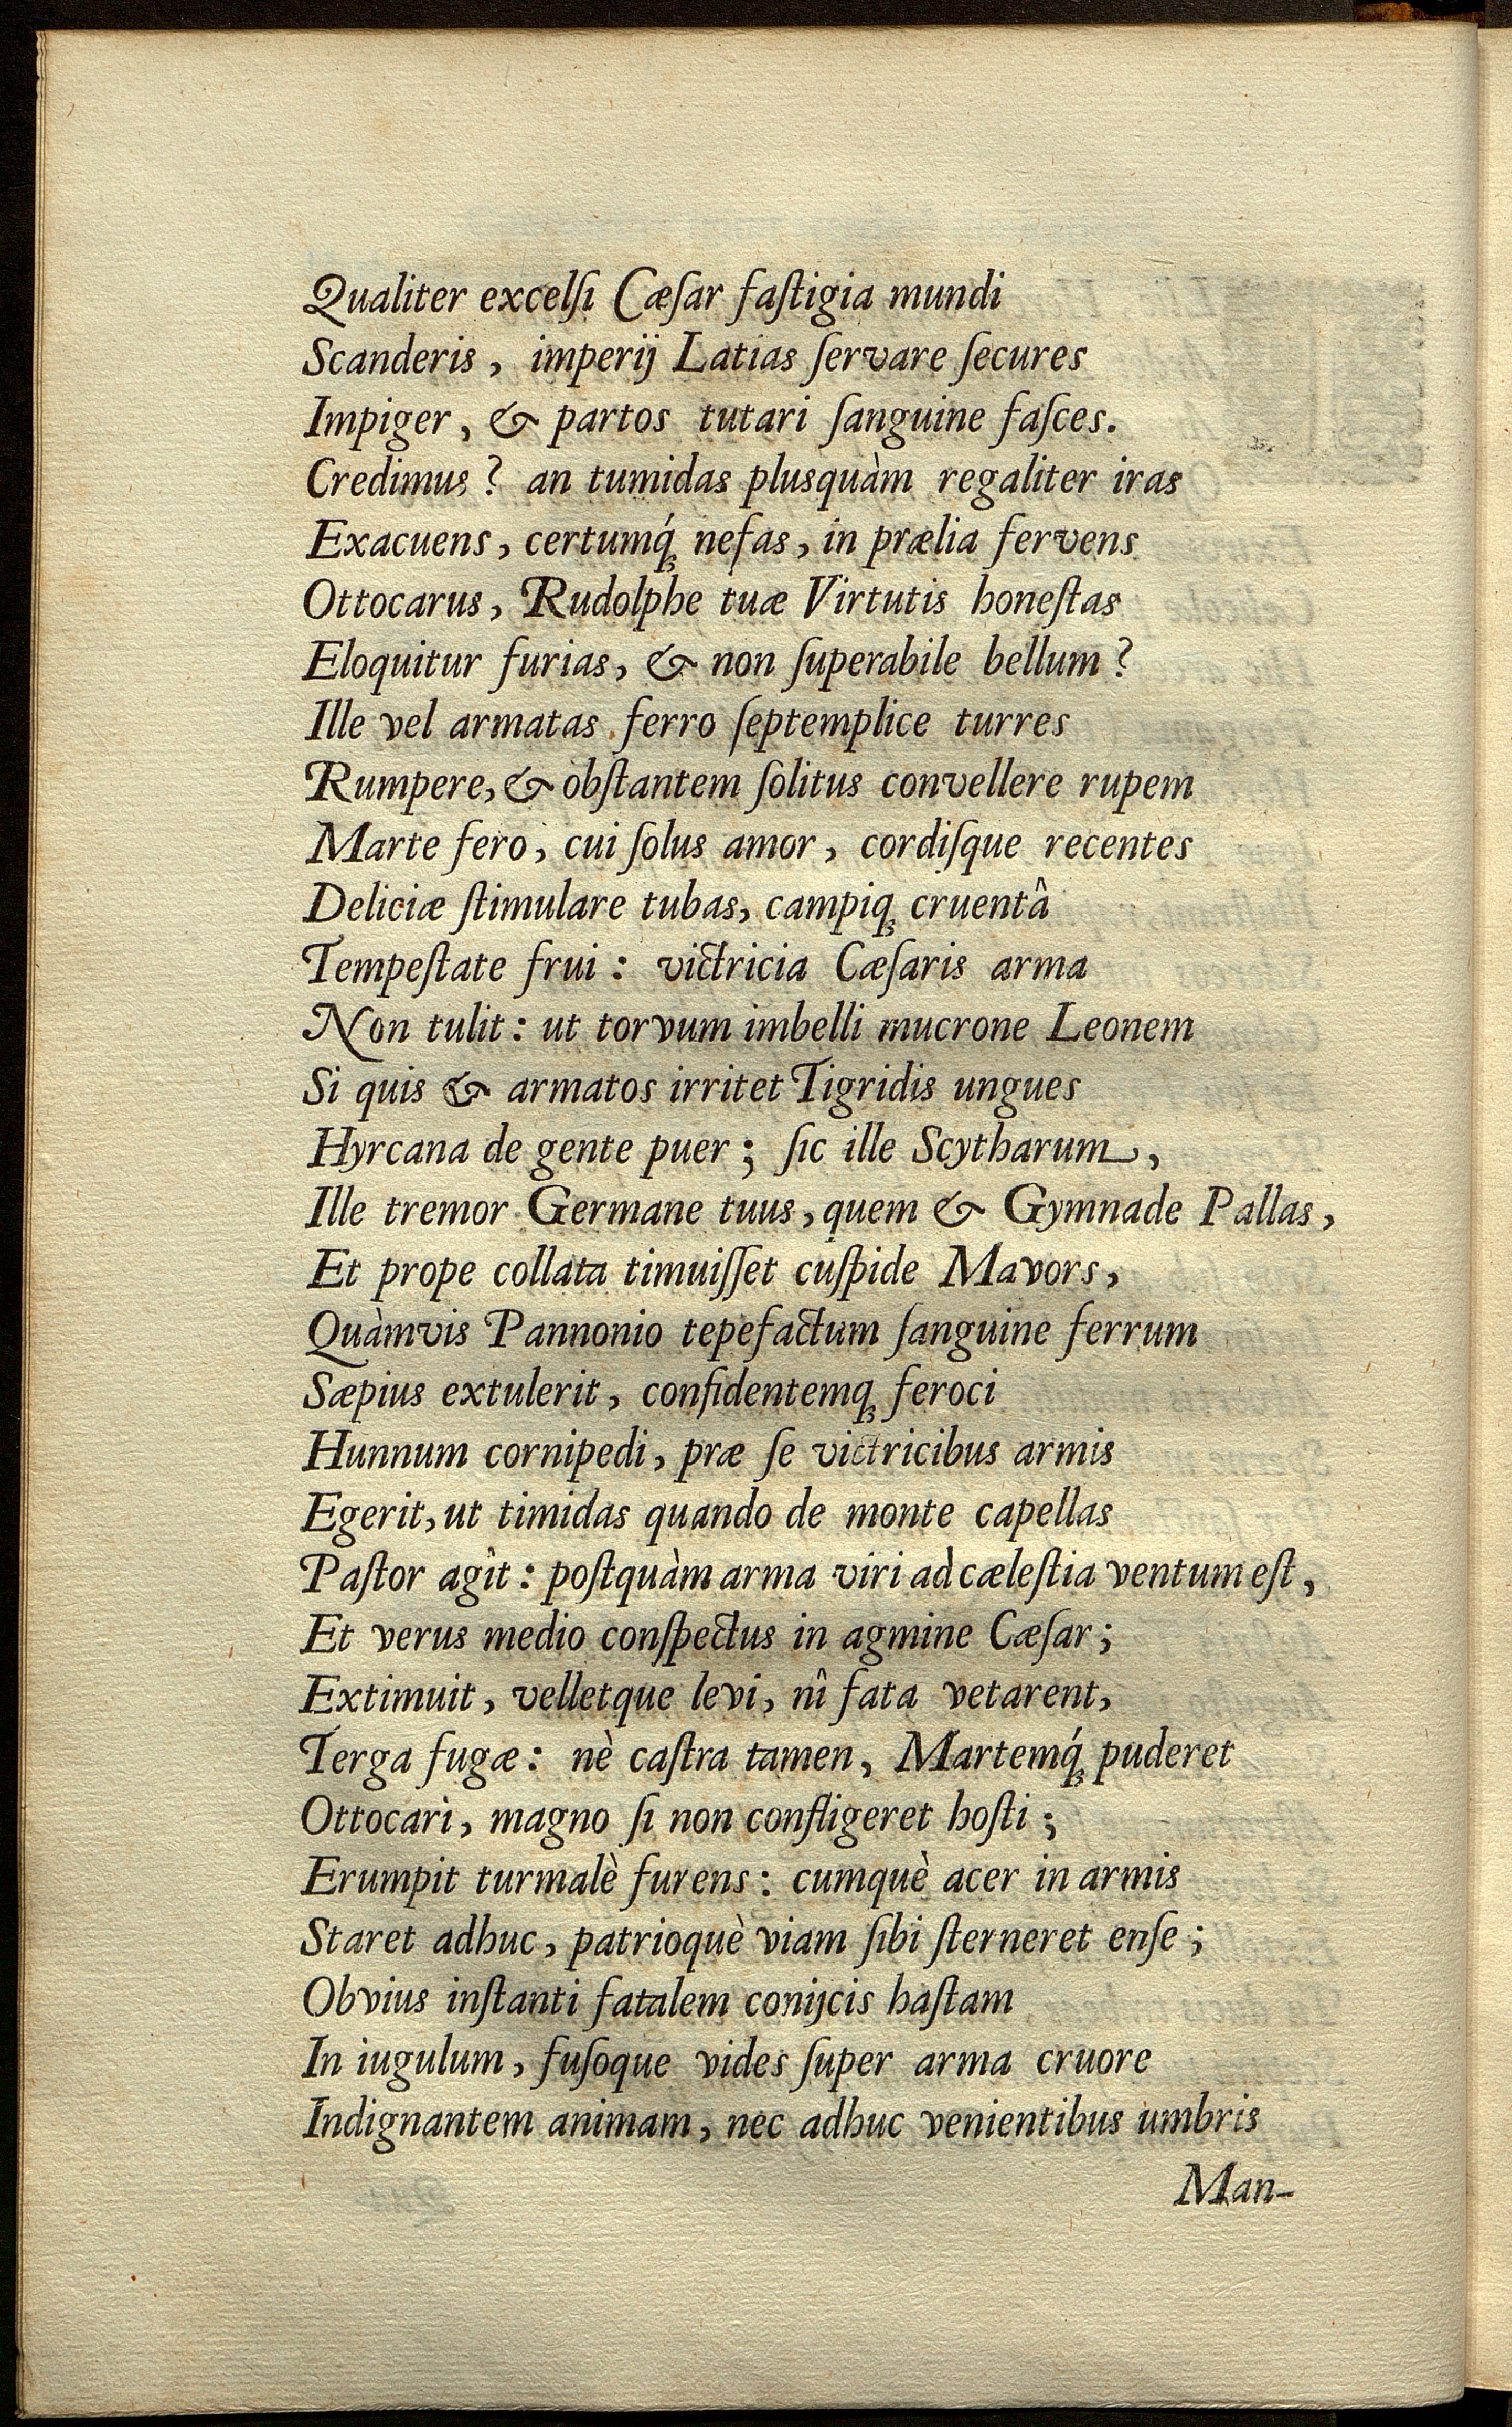 Qualiter excelſi Cæſar faſtigia mundi
Scanderis, imperij Latias ſervare ſecures
Impiger, & partos tutari ſanguine faſces.
Credimus? an tumidas plusquàm regaliter iras
Exacuens, certumq́ꝫ nefas, in prælia fervens
Ottocarus, Rudolphe tuæ Virtutis honeſtas
Eloquitur furias, & non ſuperabile bellum?
Ille vel armatas ferro ſeptemplice turres
Rumpere, & obſtantem ſolitus convellere rupem
Marte fero, cui ſolus amor, cordiſque recentes
Deliciæ ſtimulare tubas, campiqꝫ cruentâ
Tempeſtate frui: victricia Cæſaris arma
Non tulit: ut torvum imbelli mucrone Leonem
Si quis & armatos irritet Tigridis ungues
Hyrcana de gente puer; ſic ille Scytharum,
Ille tremor Germane tuus, quem & Gymnade Pallas,
Et prope collata timuiſſet cuſpide Mavors,
Quàmvis Pannonio tepefactum ſanguine ferrum
Sæpius extulerit, confidentemqꝫ feroci
Hunnum cornipedi, præ ſe victricibus armis
Egerit, ut timidas quando de monte capellas
Paſtor agît: poſtquàm arma viri ad cæleſtia ventum eſt,
Et verus medio conſpectus in agmine Cæſar;
Extimuit, velletque levi, nî fata vetarent,
Terga fugæ: nè caſtra tamen, Martemq́ꝫ puderet
Ottocari, magno ſi non confligeret hoſti;
Erumpit turmalè furens: cumquè acer in armis
Staret adhuc, patrioquè viam ſibi ſterneret enſe;
Obvius inſtanti fatalem conijcis haſtam
In iugulum, fuſoque vides ſuper arma cruore
Indignantem animam, nec adhuc venientibus umbris
Man-